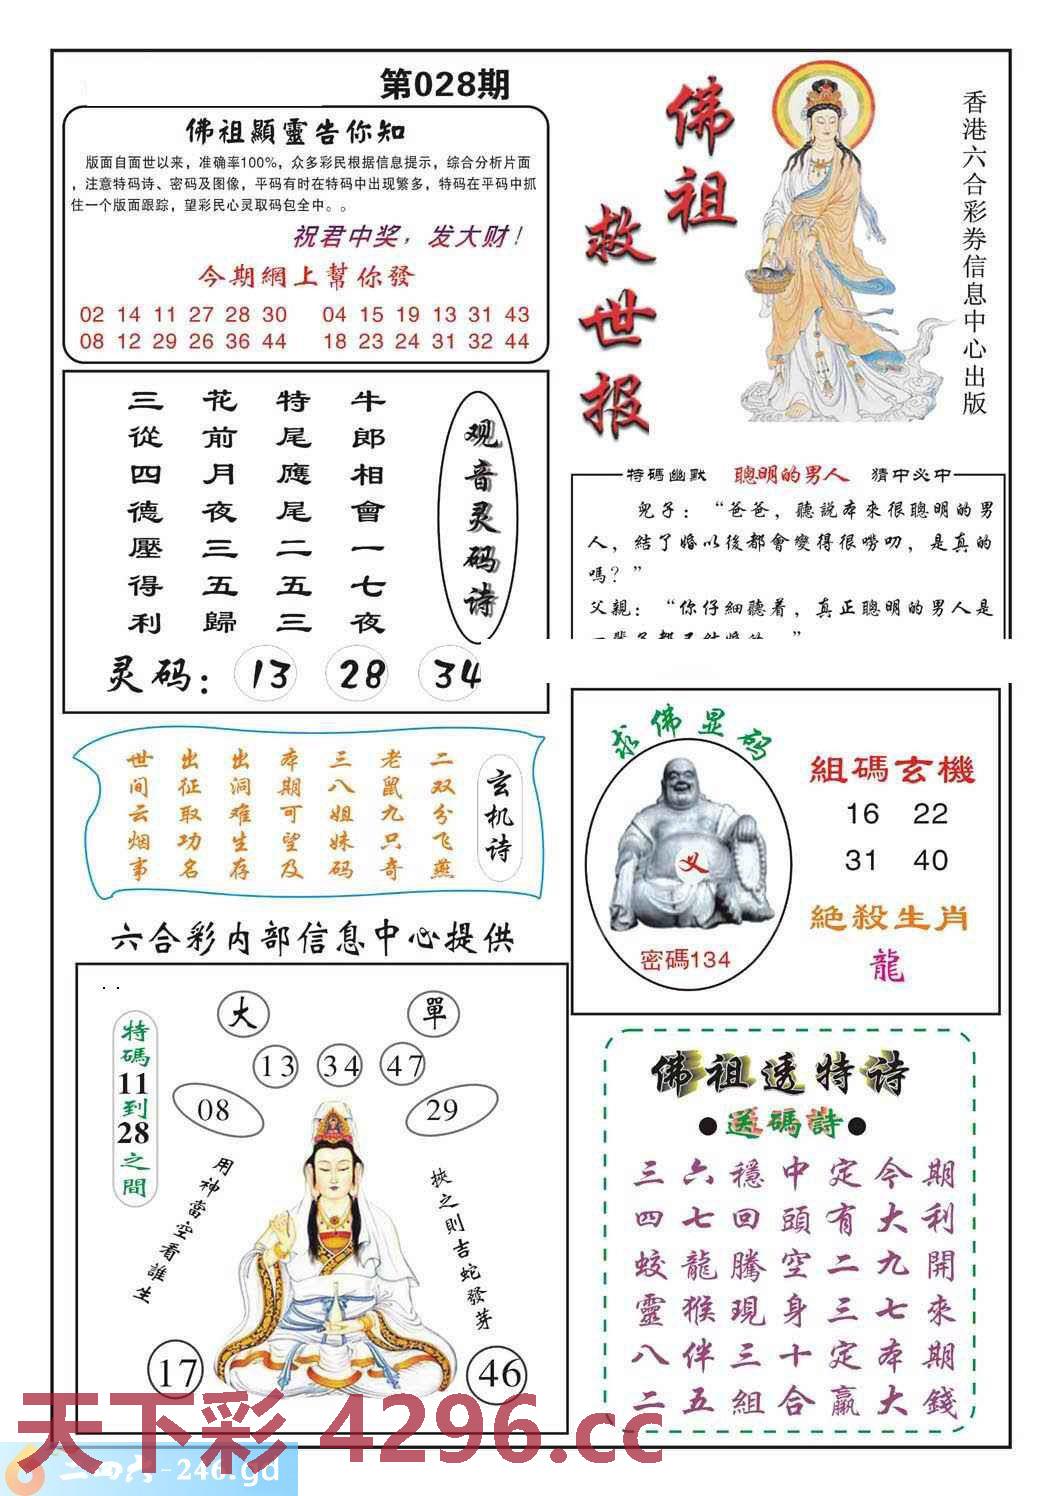 第028期
佛祖顯靈告你知
版面自面世以来，准确率100%，众多彩民根据信息提示，综合分析片面
，注意特码诗、密码及图像，平码有时在特码中出现繁多，特码在平码中抓
住一个版面跟踪，望彩民心灵取码包全中。。
祝君中奖，发大财！
今期網上幫你發
02 14 11 27 28 30 04 15 19 13 31 43
08 12 29 26 36 44 18 23 24 31 32 44
佛祖
救世报
香港六合彩券信息中心出版
观音灵码诗
牛郎相會一七夜
特尾應尾二五三
花前月夜三五歸
三從四德壓得利
灵码：13 28 34
特碼幽默 聰明的男人 猜中必中
兒子：“爸爸，聽説本來很聰明的男
人，結了婚以後都會變得很嘮叨，是真的
嗎？”
父親：“你仔細聽着，真正聰明的男人是
玄机诗
二双分飞燕
老鼠九只奇
三八姐妹码
本期可望及
出洞难生存
出征取功名
世间云烟事
求佛显码
密碼134
組碼玄機
16 22
31 40
絶殺生肖
龍
六合彩内部信息中心提供
特碼11到28之間
大 單
13 34 47
08 29
用神當空看誰生
挾之則吉蛇發芽
17 46
佛祖透特诗
●送碼詩●
三六穩中定今期
四七回頭有大利
蛟龍騰空二九開
靈猴現身三七來
八伴三十定本期
二五組合贏大錢
天下彩 4296.cc
二四六-246.gd